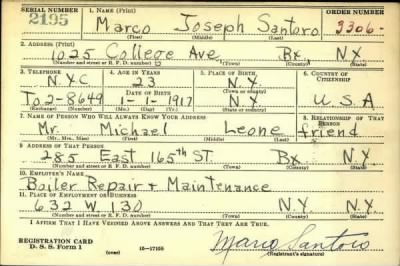 SERIAL NUMBER 1. NAME (Print) ORDER NUMBER
2195 Marco Joseph Santoro 3306-
(First) (Middle) (Last)
2. ADDRESS (Print)
1025 College Ave. Bx. N.Y.
(Number and street or R. F. D. number) (Town) (County) (State)
3. TELEPHONE 4. AGE IN YEARS 5. PLACE OF BIRTH 6. COUNTRY OF CITIZENSHIP
N.Y.C 23 N.Y.
DATE OF BIRTH (Town or county)
To.2-8649 1-1-1917 N.Y. U.S.A
(Exchange) (Number) (Mo.) (Day) (Yr.) (State or country)
7. NAME OF PERSON WHO WILL ALWAYS KNOW YOUR ADDRESS 8. RELATIONSHIP OF THAT PERSON
Mr. Michael Leone friend
(Mr., Mrs., Miss) (First) (Middle) (Last)
9. ADDRESS OF THAT PERSON
285 East 165th ST. Bx N.Y.
(Number and street or R. F. D. number) (Town) (County) (State)
10. EMPLOYER'S NAME
Boiler Repair + Maintenance
11. PLACE OF EMPLOYMENT OR BUSINESS
632 W. 130 N.Y. N.Y.
(Number and street or R. F. D. number) (Town) (County) (State)
I AFFIRM THAT I HAVE VERIFIED ABOVE ANSWERS AND THAT THEY ARE TRUE.
REGISTRATION CARD
D. S. S. Form 1 (over) 16-17105 Mario Santoro
(Registrant's signature)